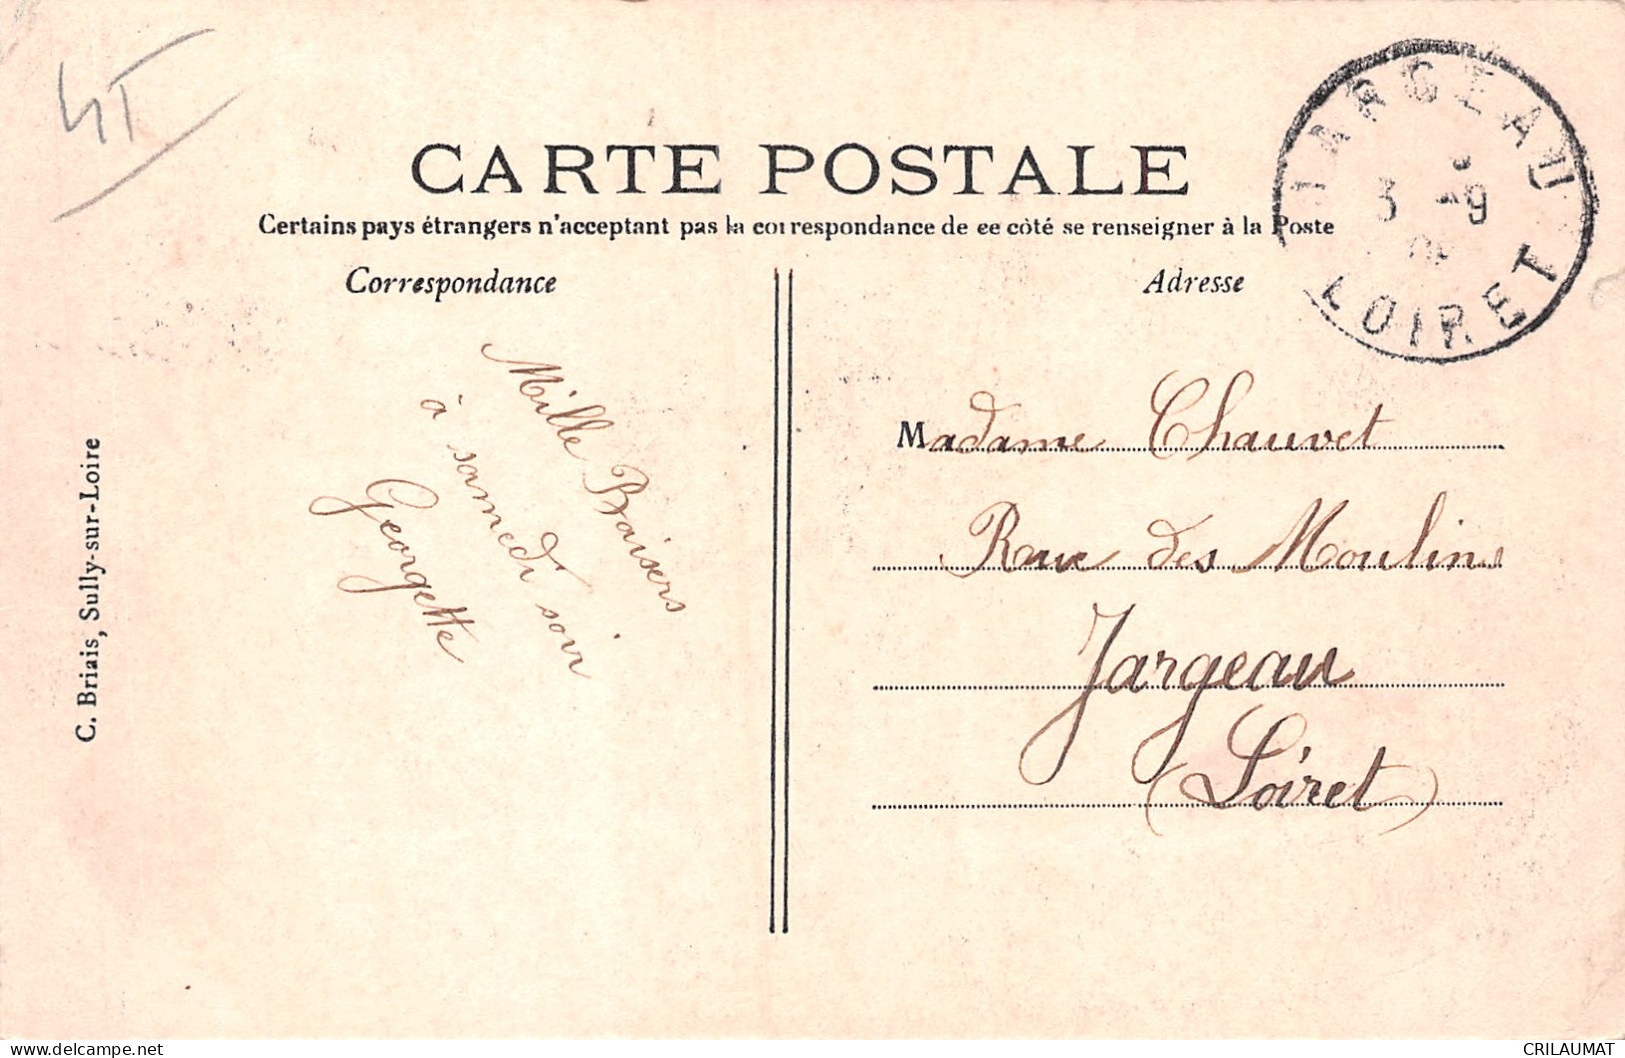 CARTE POSTALE
Certains pays étrangers n'acceptant pas la correspondance de ce côté se renseigner à la Poste
Correspondance
Adresse
JARGEAU
3 -9
LOIRET
Mille Baisers
à samedi soir
Georgette
Madame Chauvet
Rue des Moulins
Jargeau
(Loiret)
C. Briais, Sully-sur-Loire
CRILAUMAT